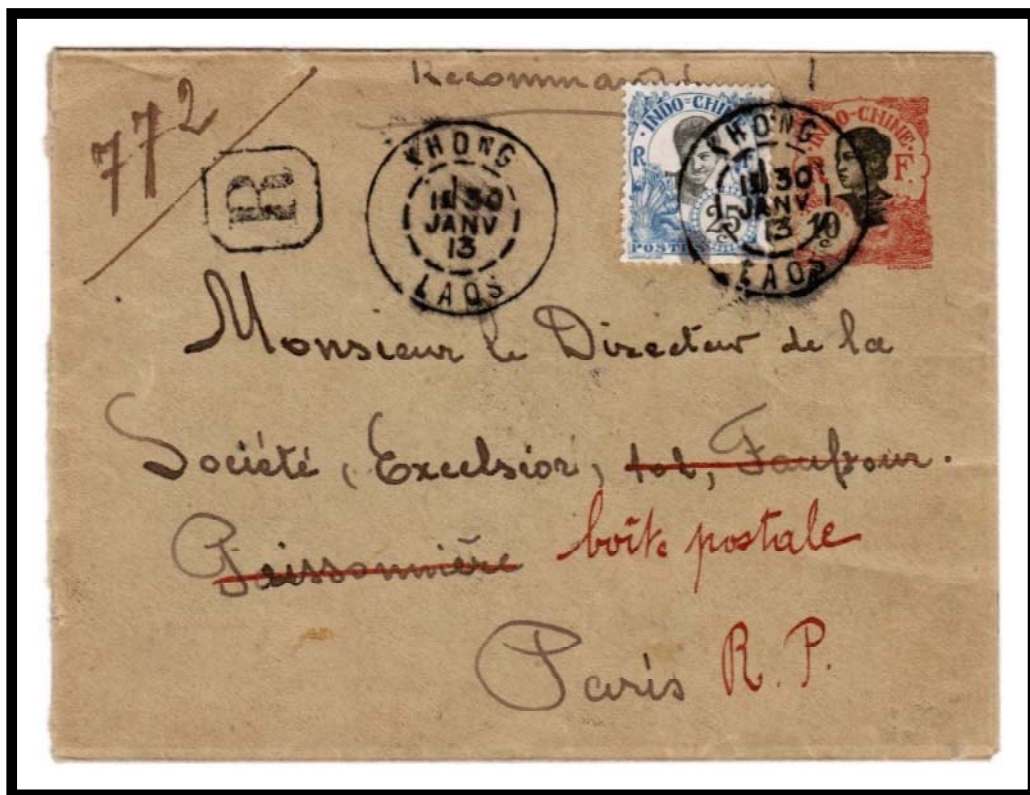 Recommandé
772
R
KHONG
30
JANV
13
LAOS
INDO=CHINE
R F
25
POSTES
KHONG
30
JANV
13
LAOS
INDO-CHINE
R F
10
Monsieur le Directeur de la
Société, Excelsior, 101, Faubour.
Poissonnière boîte postale
Paris R.P.